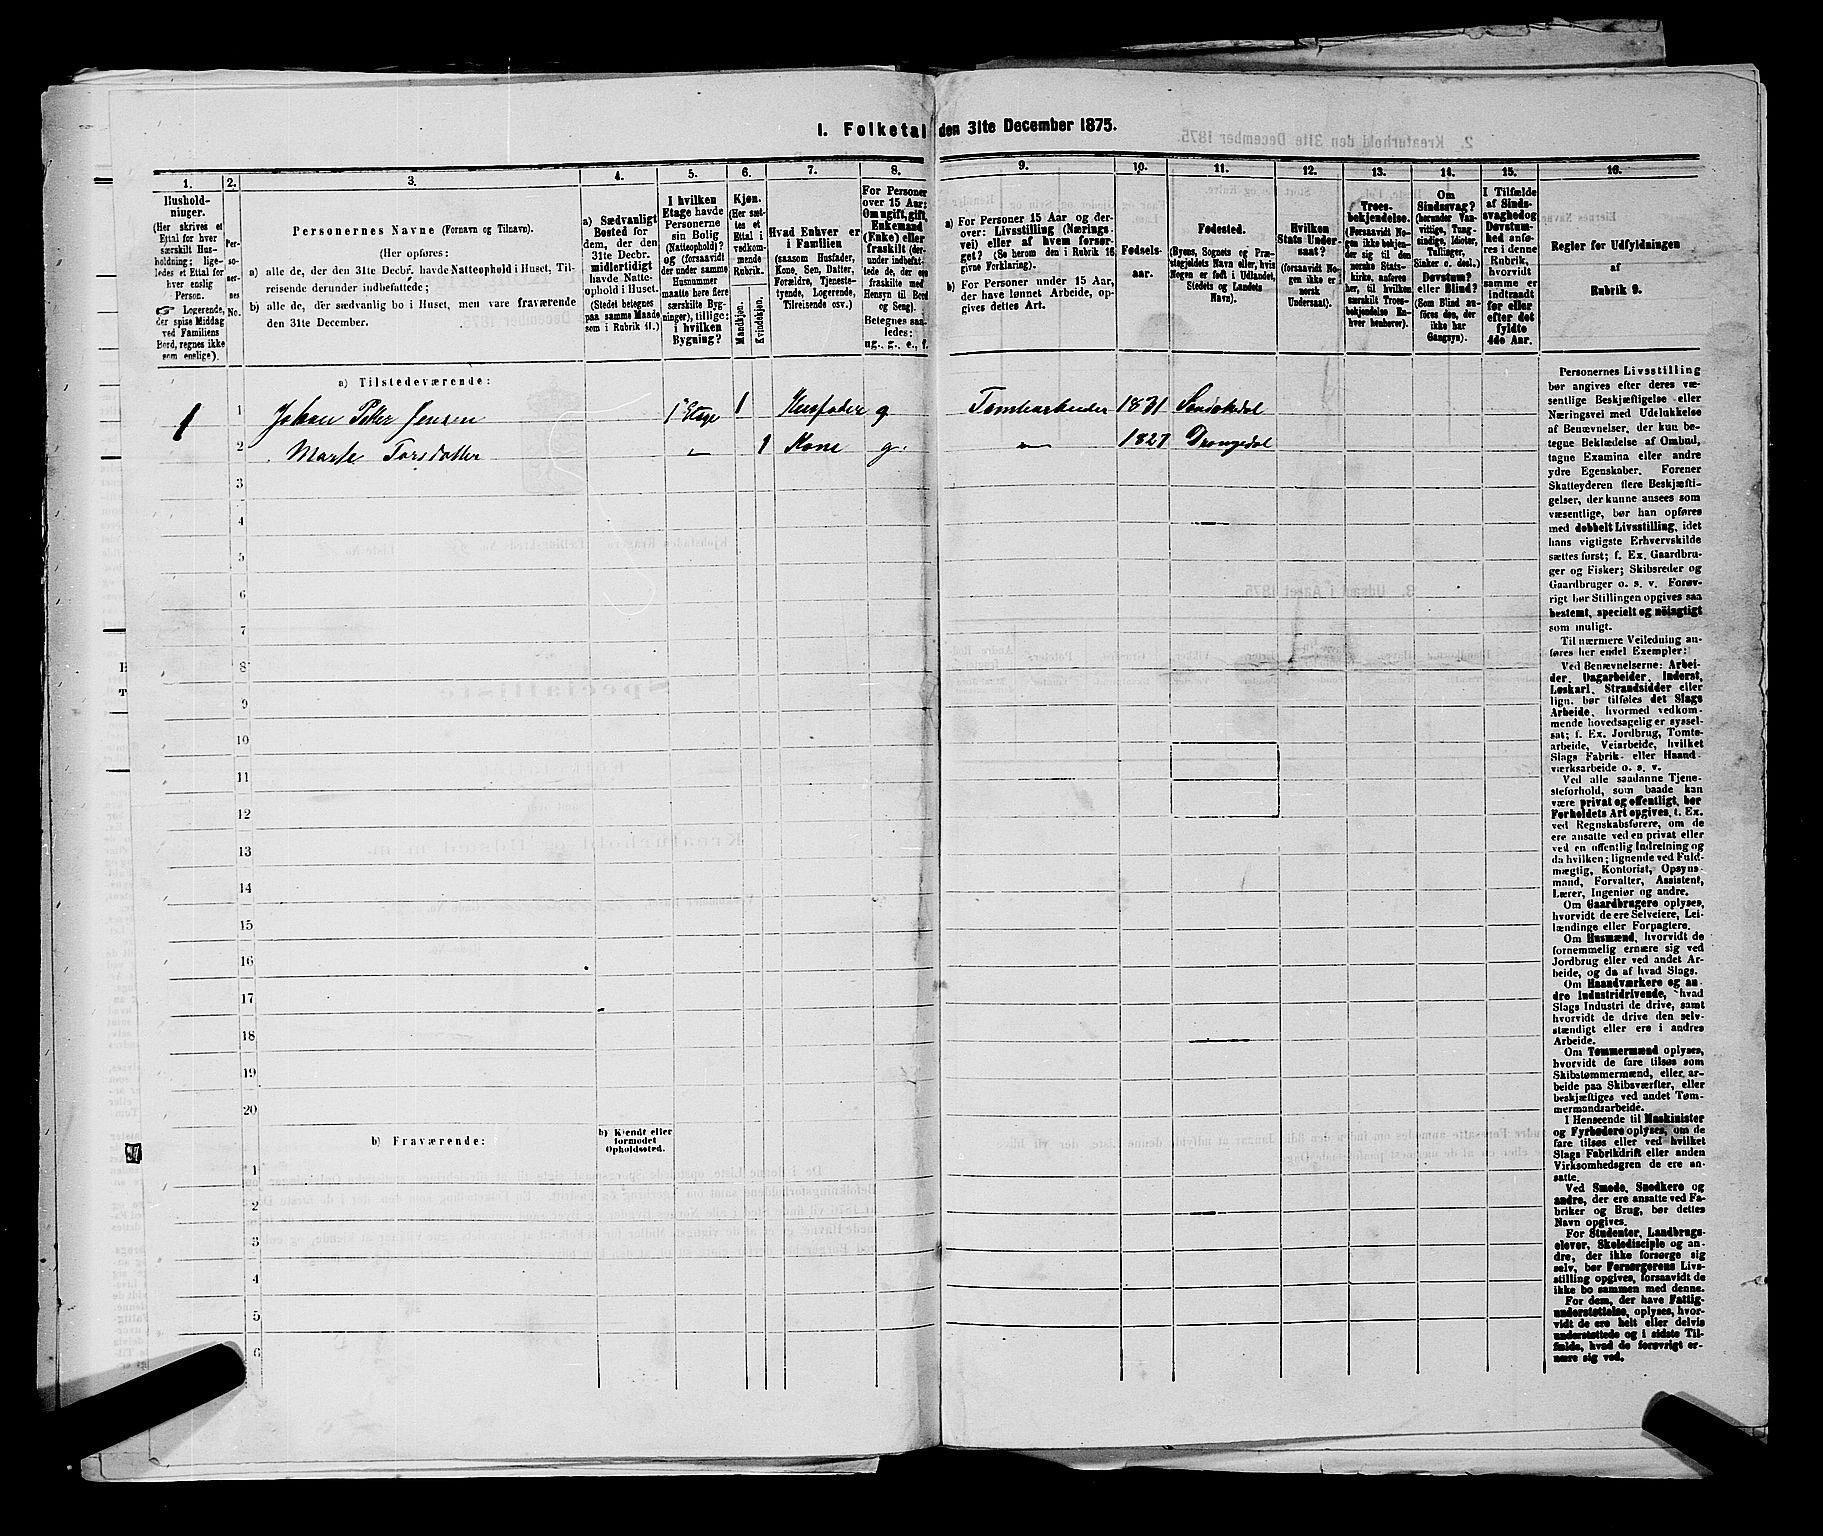 I. Folketal den 31te December 1875.
1. 2. 3. 4. 5. 6. 7. 8. 9. 10. 11. 12. 13. 14. 15. 16.
Hushold-
ninger.
(Her skrives et
Ettal for hver
særskilt Hus-
holdning; lige-
ledes et Ettal for
hver enslig
Person.
☞ Logerende,
der spise Middag
ved Familiens
Bord, regnes ikke
som enslige).
Per-
so-
ner-
nes
No.
Personernes Navne (Fornavn og Tilnavn).
(Her opføres:
a) alle de, der den 31te Decbr. havde Natteophold i Huset, Til-
reisende derunder indbefattede;
b) alle de, der sædvanlig bo i Huset, men vare fraværende
den 31te December.
a) Sædvanligt
Bosted for
dem, der den
31te Decbr.
midlertidigt
havde Natte-
ophold i Huset.
(Stedet betegnes
paa samme Maade
som i Rubrik 11.)
I hvilken
Etage havde
Personerne
sin Bolig
(Natteophold)?
og (forsaavidt
der under samme
Husnummer
maatte høre flere
særskilte Byg-
ninger), tillige:
i hvilken
Bygning?
Kjøn.
(Her sæt-
tes et
Ettal i
vedkom-
mende
Rubrik.
Mandkjøn.
Kvindekjøn.
Hvad Enhver er
i Familien
(saasom Husfader,
Kone, Søn, Datter,
Forældre, Tjeneste-
tyende, Logerende,
Tilreisende osv.)
For Personer
over 15 Aar:
Om ugift, gift,
Enkemand
(Enke) eller
fraskilt (der-
under indbefat-
tede de, der ere
fraskilte med
Hensyn til Bord
og Seng).
Betegnes saa-
ledes:
ug., g., e., f.
a) For Personer 15 Aar og der-
over: Livsstilling (Nærings-
vei) eller af hvem forsør-
get? (Se herom den i Rubrik 16
givne Forklaring).
b) For Personer under 15 Aar,
der have lønnet Arbeide, op-
gives dettes Art.
Fødsels-
aar.
Fødested.
(Byens, Sognets og Præ-
stegjeldets Navn eller, hvis
Nogen er født i Udlandet,
Stedets og Landets
Navn).
Hvilken
Stats Under-
saat?
(forsaavidt No-
gen ikke er
norsk
Undersaat).
Troes-
bekjendelse.
(Forsaavidt No-
gen ikke bekjen-
der sig til den
norske Stats-
kirke, anføres
her, til hvilken
særskilt Troes-
bekjendelse En-
hver henhører).
Om
Sindssvag?
(herunder Van-
vittige, Tung-
sindige, Idioter,
Tullinger,
Sinker o. desl.)
Døvstum?
eller Blind?
(Som Blind an-
føres den, der
ikke har
Gangsyn).
I Tilfælde
af Sinds-
svaghed og
Døvstum-
hed anfø-
res i denne
Rubrik,
hvorvidt
samme er
indtraadt
før eller
efter det
fyldte
4de Aar.
Regler for Udfyldningen
af
Rubrik 9.
a) Tilstedeværende:
1 1 Johan Petter Jensen 1 Etage 1 Husfader g Tomtearbeider 1831 Sandøkedal
2 Marte Torsdatter " 1 Kone g. " 1827 Drangedal
3
4
5
6
7
8
9
10
11
12
13
14
15
16
17
18
19
20
b) Fraværende:
b) Kjendt eller
formodet
Opholdssted.
1
2
3
4
5
6
Personernes Livsstilling
bør angives efter deres væ-
sentlige Beskjæftigelse eller
Næringsvei med Udelukkelse
af Benævnelser, der kun be-
tegne Beklædelse af Ombud,
tagne Examina eller andre
ydre Egenskaber. Forener
Skatteyderen flere Beskjæfti-
gelser, der kunne ansees som
væsentlige, bør han opføres
med dobbelt Livsstilling, idet
hans vigtigste Erhvervskilde
sættes først; f. Ex. Gaardbru-
ger og Fisker; Skibsreder og
Gaardbruger o. s. v. Forøv-
rigt bør Stillingen opgives saa
bestemt, specielt og nöiagtigt
som muligt.
Til nærmere Veiledning an-
føres her endel Exempler:
Ved Benævnelserne: Arbei-
der, Dagarbeider, Inderst,
Løskarl, Strandsidder eller
lign. bør tilføies det Slags
Arbeide, hvormed vedkom-
mende hovedsagelig er syssel-
sat; f. Ex. Jordbrug, Tomte-
arbeide, Veiarbeide, hvilket
Slags Fabrik- eller Haand-
værksarbeide o. s. v.
Ved alle saadanne Tjene-
steforhold, som baade kan
være privat og offentligt, bør
Forholdets Art opgives, f. Ex.
ved Regnskabsførere, om de
ere ansatte ved en privat eller
ved en offentlig Indretning og
da hvilken; lignende ved Fuld-
mægtig, Kontorist, Opsyns-
mand, Forvalter, Assistent,
Lærer, Ingeniør og andre.
Om Gaardbrugere oplyses,
hvorvidt de ere Selveiere, Lei-
lændinge eller Forpagtere.
Om Husmænd, hvorvidt de
fornemmelig ernære sig ved
Jordbrug eller ved andet Ar-
beide, og da af hvad Slags.
Om Haandværkere og an-
dre Industridrivende, hvad
Slags Industri de drive, samt
hvorvidt de drive den selv-
stændigt eller ere i andres
Arbeide.
Om Tømmermænd oplyses,
hvorvidt de fare tilsøs som
Skibstømmermænd, eller ar-
beide paa Skibsværfter, eller
beskjæftiges ved andet Tøm-
mermandsarbeide.
I Henseende til Maskinister
og Fyrbødere oplyses, om de
fare tilsøs eller ved hvilket
Slags Fabrikdrift eller anden
Virksomhedsgren de ere an-
satte.
Ved Smede, Snedkere og
andre, der ere ansatte ved Fa-
briker og Brug, bør dettes
Navn opgives.
For Studenter, Landbrugs-
elever, Skoledisciple og an-
dre, der ikke forsørge sig
selv, bør Forsørgerens Livs-
stilling opgives, forsaavidt de
ikke bo sammen med denne.
For dem, der have Fattig-
understøttelse, oplyses, hvor-
vidt de ere helt eller delvis
understøttede og i sidste Til-
fælde, hvad de forøvrigt er-
nære sig ved.